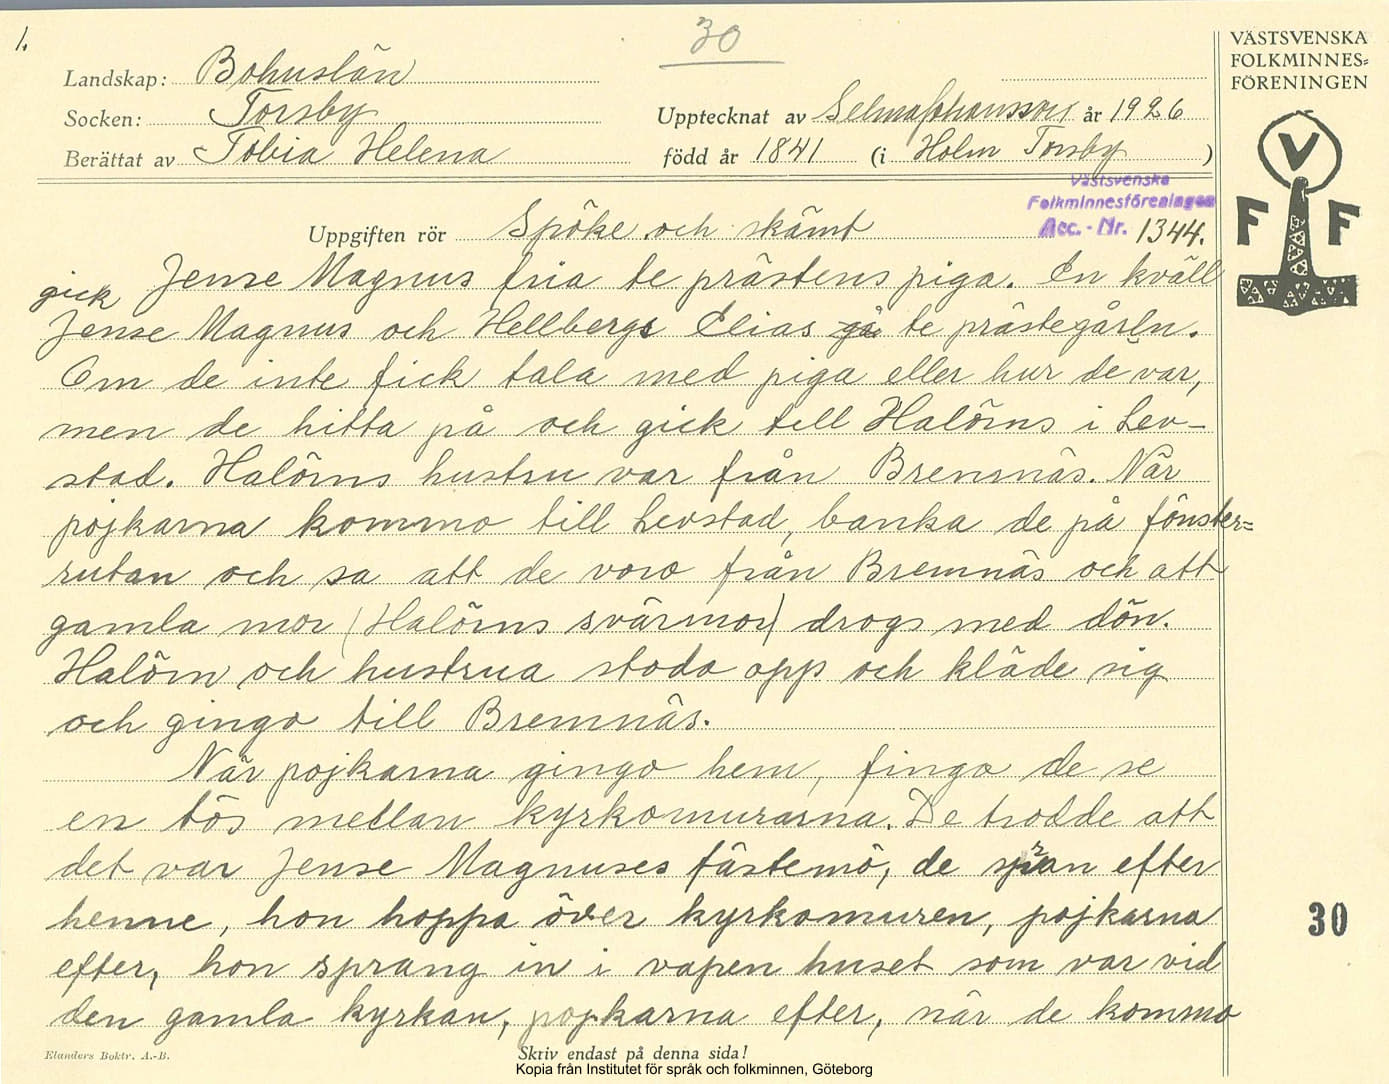 1.
30
VÄSTSVENSKA
FOLKMINNES=
FÖRENINGEN
Landskap: Bohuslän
Socken: Torsby
Upptecknat av Selma Johansson år 1926
Berättat av Tobia Helena
född år 1841 (i Holm Torsby )
V
F F
Västsvenska
Folkminnesföreningen
Acc. - Nr. 1344.
Uppgiften rör Spöke och skämt
Jense Magnus fria te prästens piga. En kväll
gick
Jense Magnus och Hellbergs Elias gå te prästegårln.
Om de inte fick tala med piga eller hur de var,
men de hitta på och gick till Halörns i Lev-
stad. Halörns hustru var från Bremnäs. När
pojkarna kommo till Levstad, banka de på fönster=
rutan och sa att de voro från Bremnäs och att
gamla mor (Halörns svärmor) drogs med dön.
Halörn och hustrua stodo opp och kläde sig
och gingo till Bremnäs.
När pojkarna gingo hem, fingo de se
en tös mellan kyrkomurarna. De trodde att
det var Jense Magnuses fästemö, de spran efter
henne, hon hoppa över kyrkomuren, pojkarna
efter, hon sprang in i vapen huset som var vid
den gamla kyrkan, pojkarna efter, när de kommo
30
Elanders Boktr. A.-B.
Skriv endast på denna sida!
Kopia från Institutet för språk och folkminnen, Göteborg